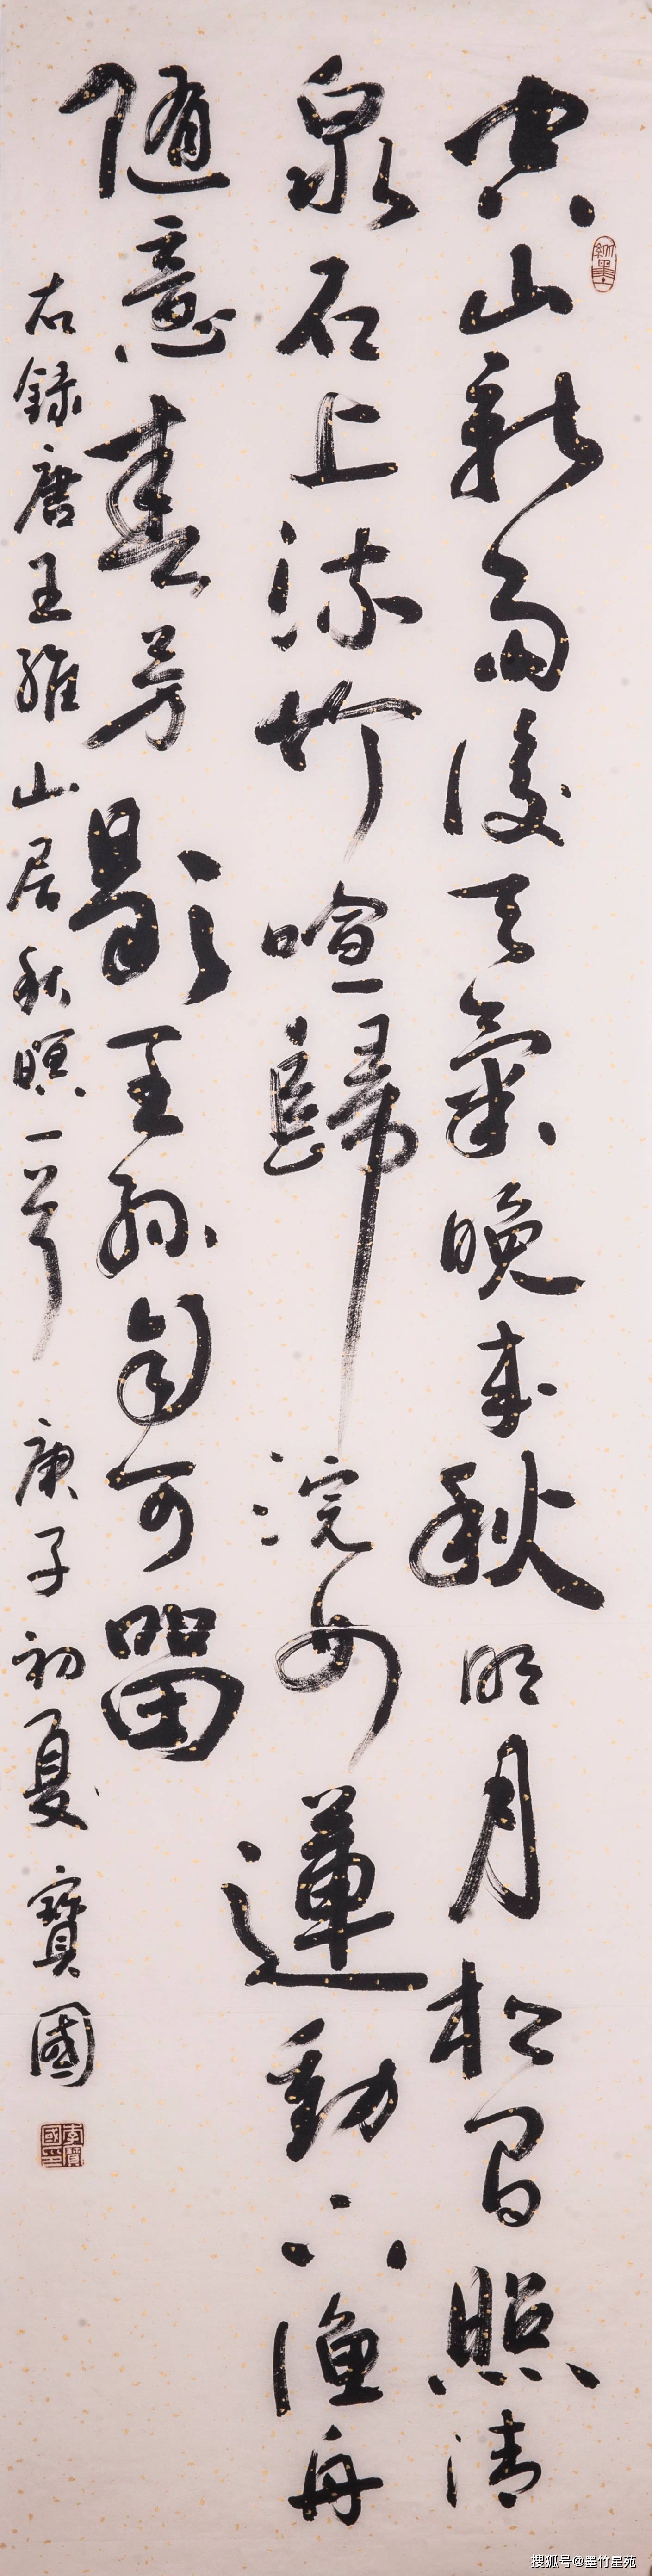 空山新雨後天氣晚來秋明月松間照清
泉石上流竹喧歸浣女蓮動下漁舟
隨意春芳歇王孫自可留
右錄唐王維山居秋暝一首 庚子初夏 寶國
李寶國印
搜狐号@墨竹星苑